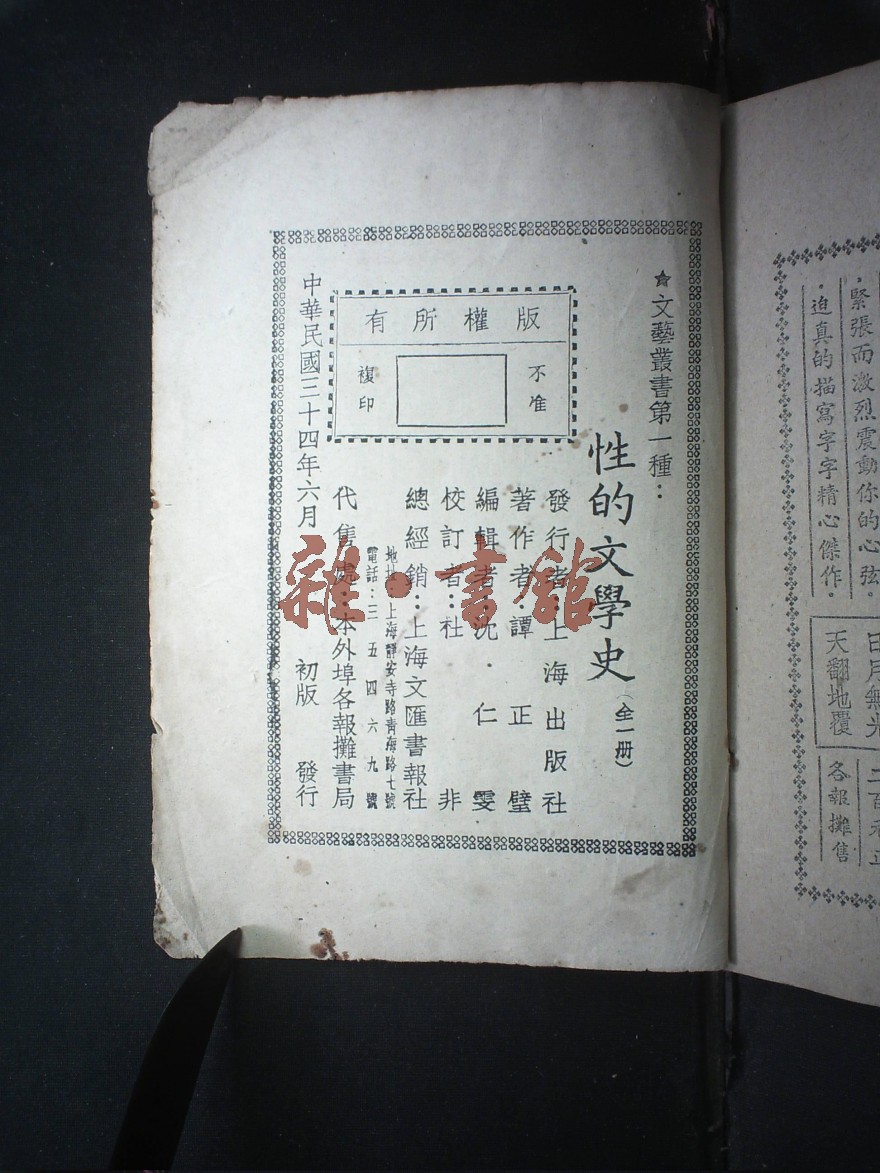 緊張而激烈震動你的心弦。
迫真的描寫字字精心傑作。
日月無光
天翻地覆
各報攤售
★文藝叢書第一種：
性的文學史（全一册）
發行者：上海出版社
著作者：譚正璧
編輯者：沈·仁雯
校訂者：杜非
總經銷：上海文匯書報社
地址：上海靜安寺路青海路七號
電話：三五四六九號
代售處：本外埠各報攤書局
中華民國三十四年六月 初版 發行
版權所有
不准
複印
雜·書館